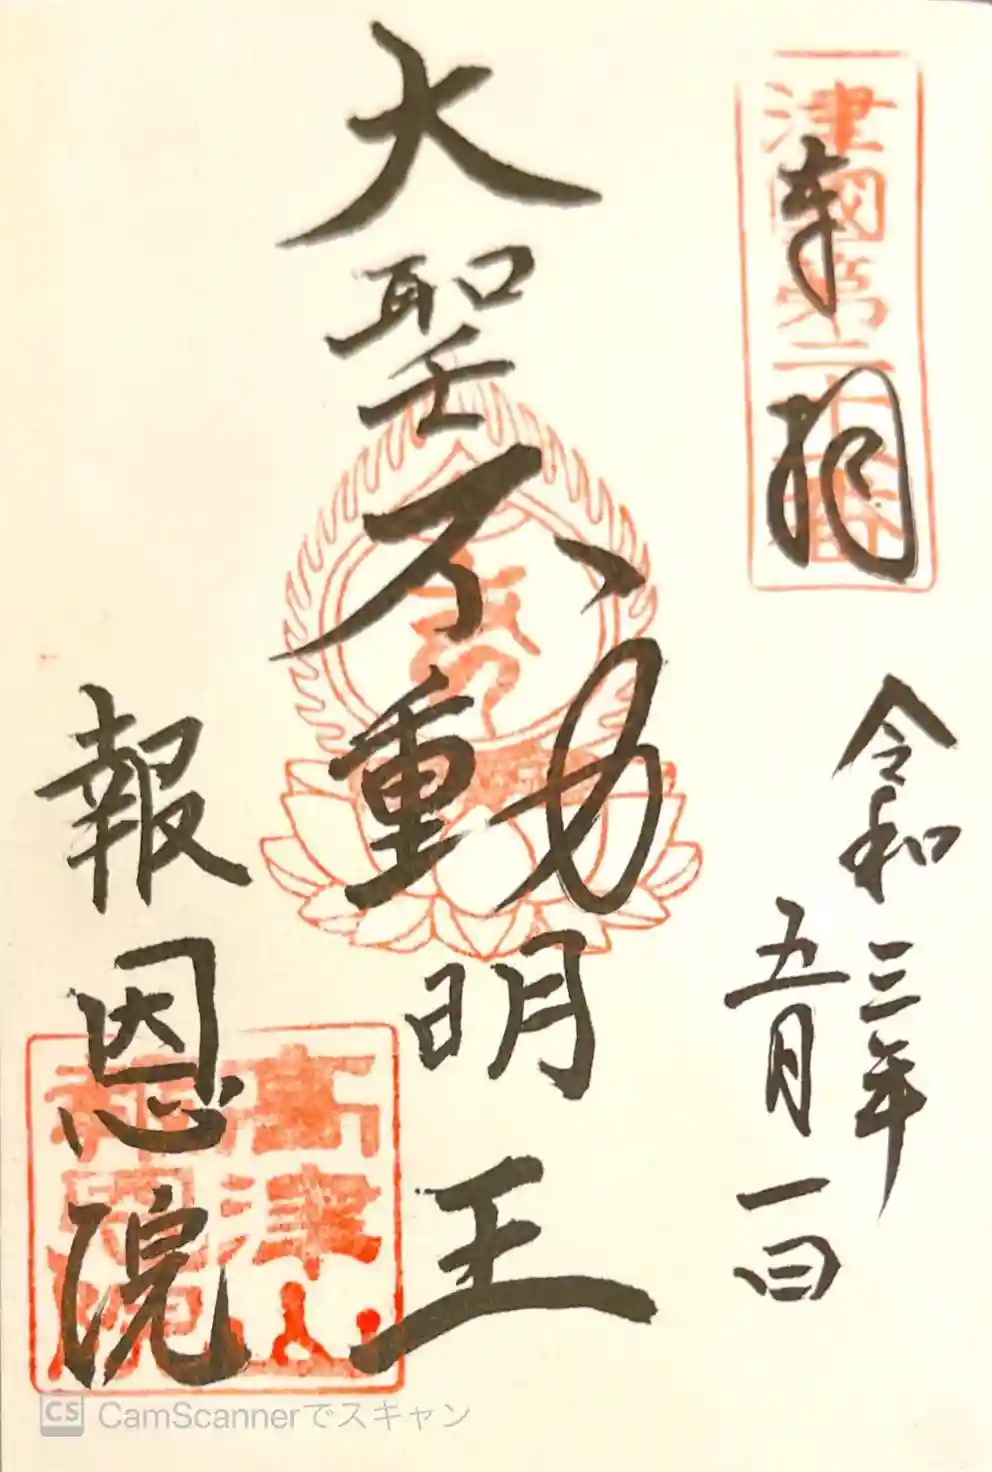 奉拝
津國第三十番
令和三年
五月一日
大聖不動明王
報恩院
高津
報恩院
CS CamScannerでスキャン